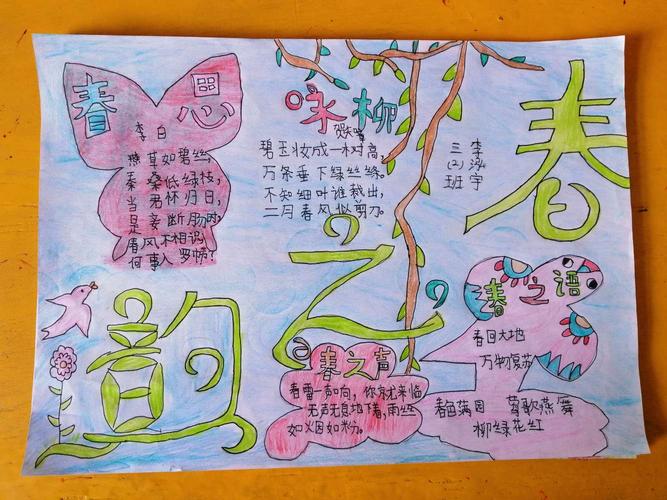 春思
李白
燕草如碧丝,
秦桑低绿枝,
当君怀归日,
是妾断肠时,
春风不相识,
何事入罗帏?
咏柳
贺知章
碧玉妆成一树高,
万条垂下绿丝绦。
不知细叶谁裁出,
二月春风似剪刀。
三(2)班
李泳宇
春
之
韵
春之声
春雷一声响,你就来临
无声无息地下着,雨丝
如烟如粉。
春之语
春回大地
万物复苏
春色满园
莺歌燕舞
柳绿花红